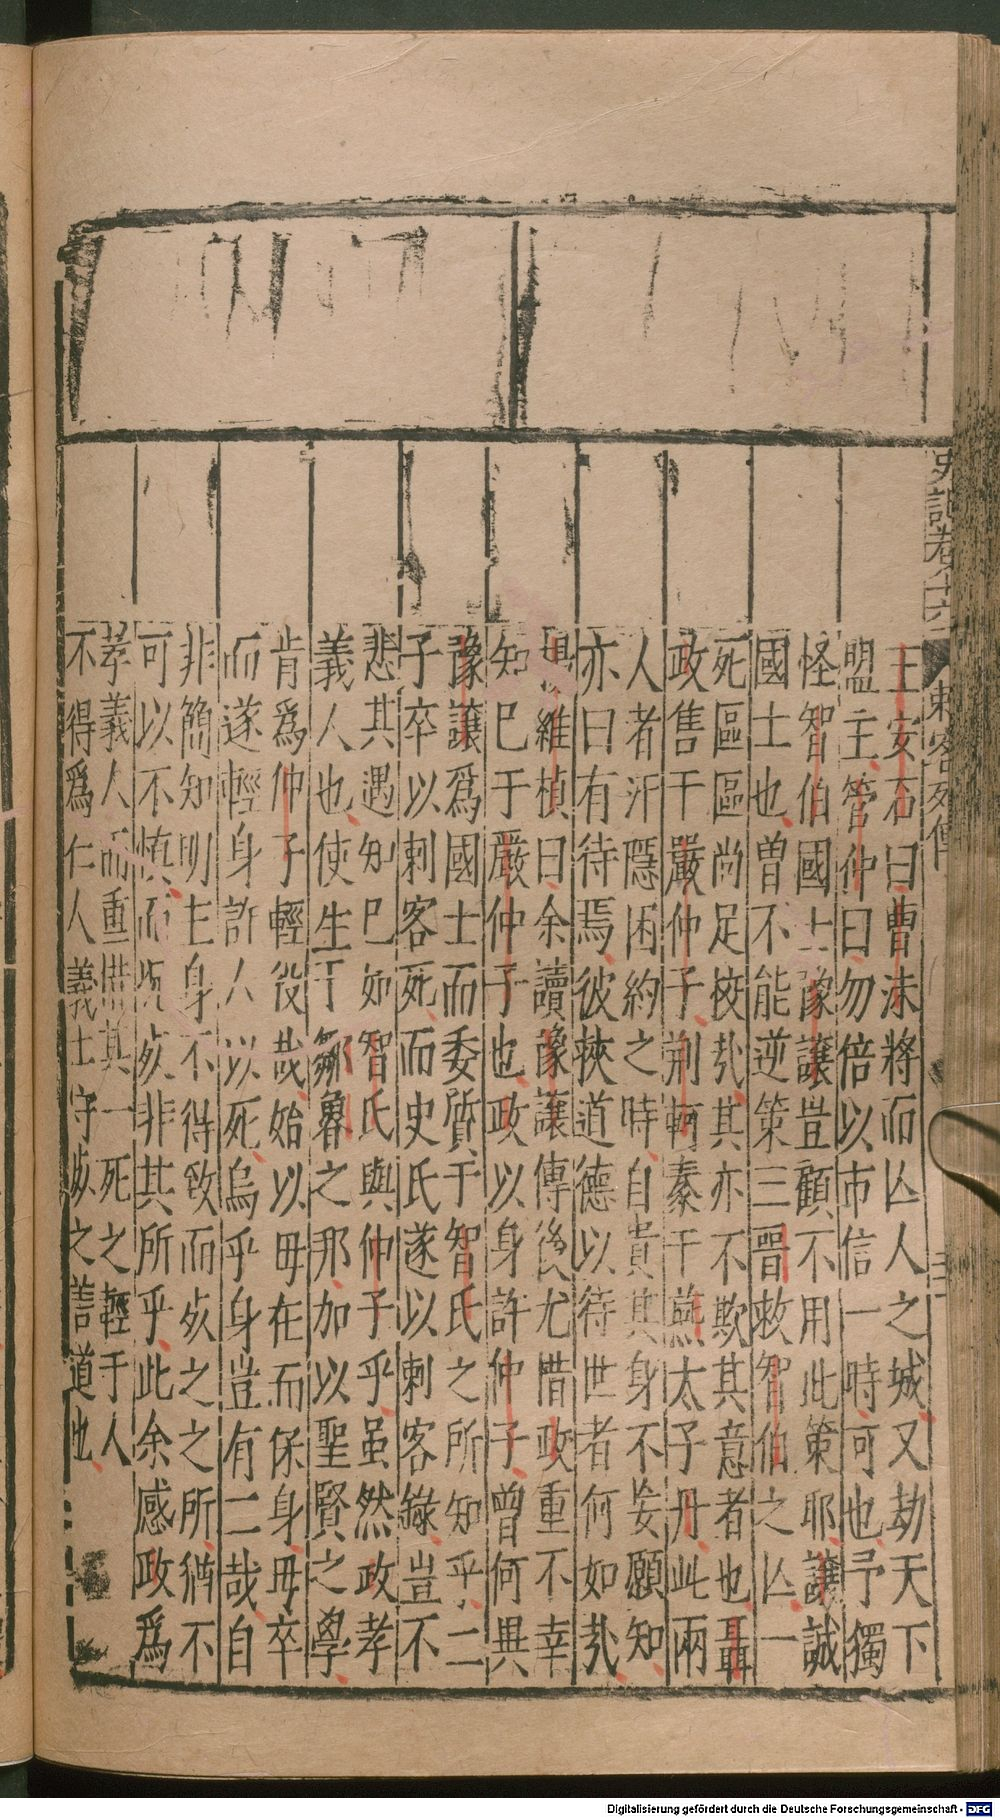 史記卷八十六
刺客列傳
王安石曰曹沬將而亾人之城又劫天下
盟主管仲曰勿倍以市信一時可也予獨
怪智伯國士豫讓豈顧不用此策耶讓誠
國士也曽不能逆策三晋救智伯之亾一
死區區尚足挍㢤其亦不欺其意者也聶
政售于嚴仲子荆軻豢于燕太子丹此兩
人者汙隱困約之時自貴其身不妄願知
亦曰有待焉彼挾道德以待世者何如㢤
楊維楨曰余讀豫讓傳後尤惜政重不幸
知已于嚴仲子也政以身許仲子曾何異
豫讓爲國士而委質于智氏之所知乎二
子卒以刺客死而史氏遂以刺客錄豈不
悲其遇知已如智氏與仲子乎虽然政孝
義人也使生于鄒魯之邦加以聖賢之學
肯爲仲子輕役哉始以毋在而保身毋卒
而遂輕身許人以死烏乎身豈有二哉自
非簡知明主身不得致而歿之之所猶不
可以不慎而况歿非其所乎此余感政爲
孝義人而重惜其一死之輕于人
不得爲仁人義士守歿之善道也
Digitalisierung gefördert durch die Deutsche Forschungsgemeinschaft - DFG